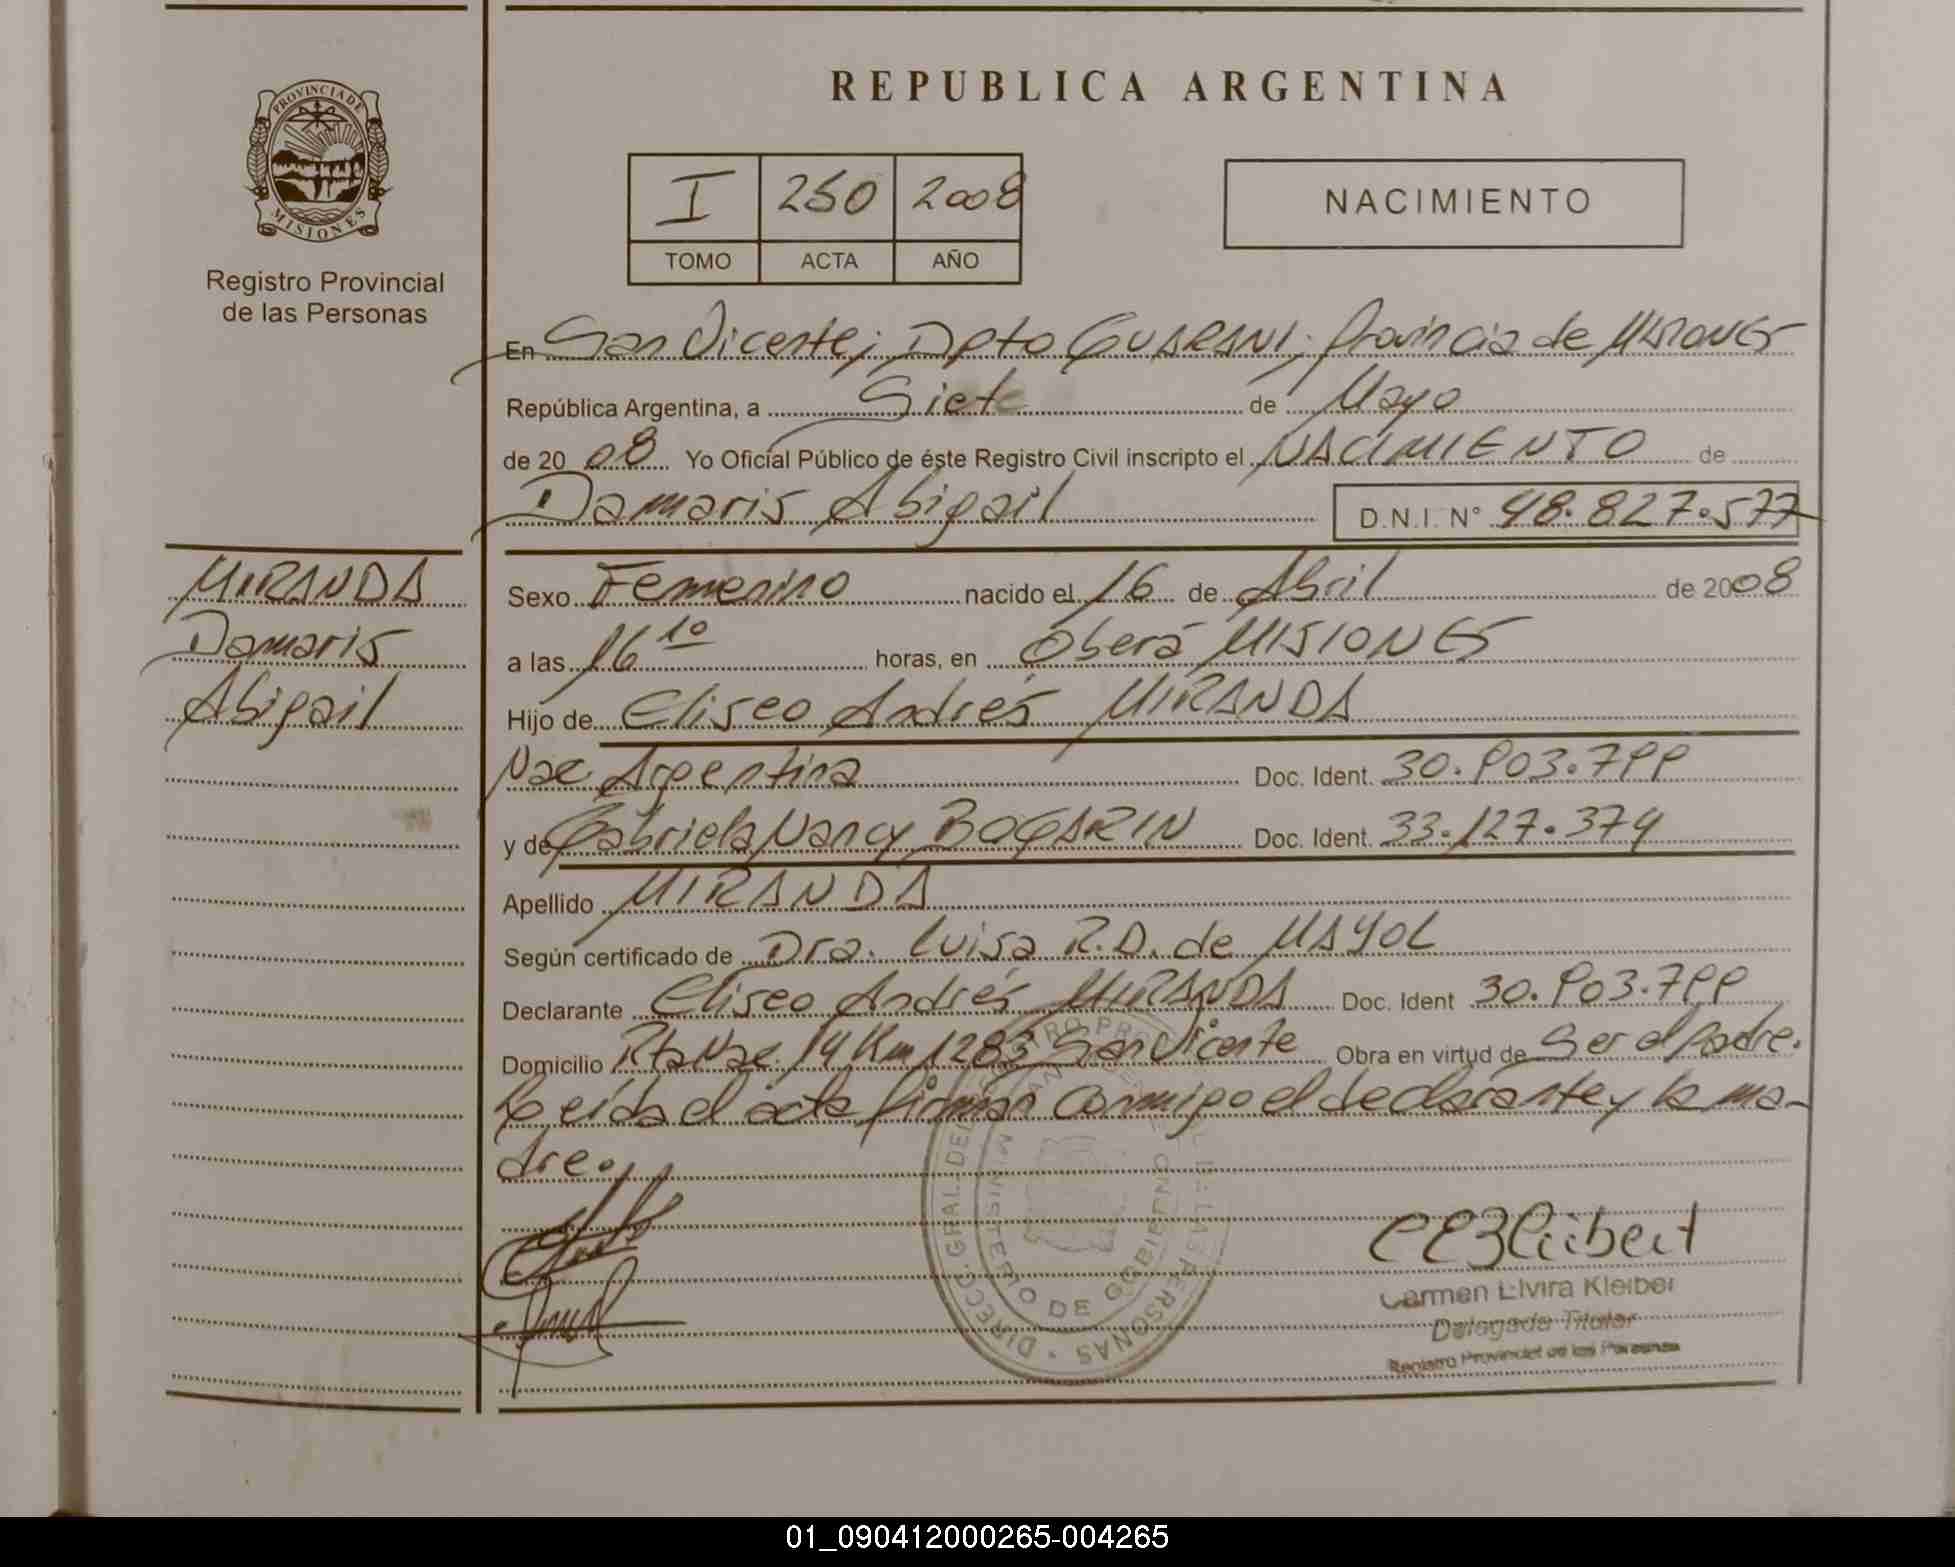 PROVINCIA DE
MISIONES
Registro Provincial
de las Personas
REPUBLICA ARGENTINA
I 250 2008
TOMO ACTA AÑO
NACIMIENTO
En San Vicente; Dpto GUARANI; Provincia de MISIONES
República Argentina, a Siete de Mayo
de 2008 Yo Oficial Público de éste Registro Civil inscripto el NACIMIENTO de
Damaris Abigail D.N.I. N° 48.827.577
MIRANDA
Damaris
Abigail
Sexo Femenino nacido el 16 de Abril de 2008
a las 16 10 horas, en Oberá MISIONES
Hijo de Eliseo Andrés MIRANDA
Nac Argentina Doc. Ident. 30.903.799
y de Gabriela Nancy BOGARIN Doc. Ident. 33.127.374
Apellido MIRANDA
Según certificado de Dra. Luisa R.D. de MAYOL
Declarante Eliseo Andrés MIRANDA Doc. Ident 30.903.799
Domicilio Rta Nac. 14 Km 1283 San Vicente Obra en virtud de Ser el padre.
Leída el acta firman conmigo el declarante y la ma-
dre.
DIRECC. GRAL. DEL PERSONAS
MINISTERIO DE GOBIERNO
Carmen Elvira Kleiber
Delegada Titular
Registro Provincial de las Personas
01_090412000265-004265